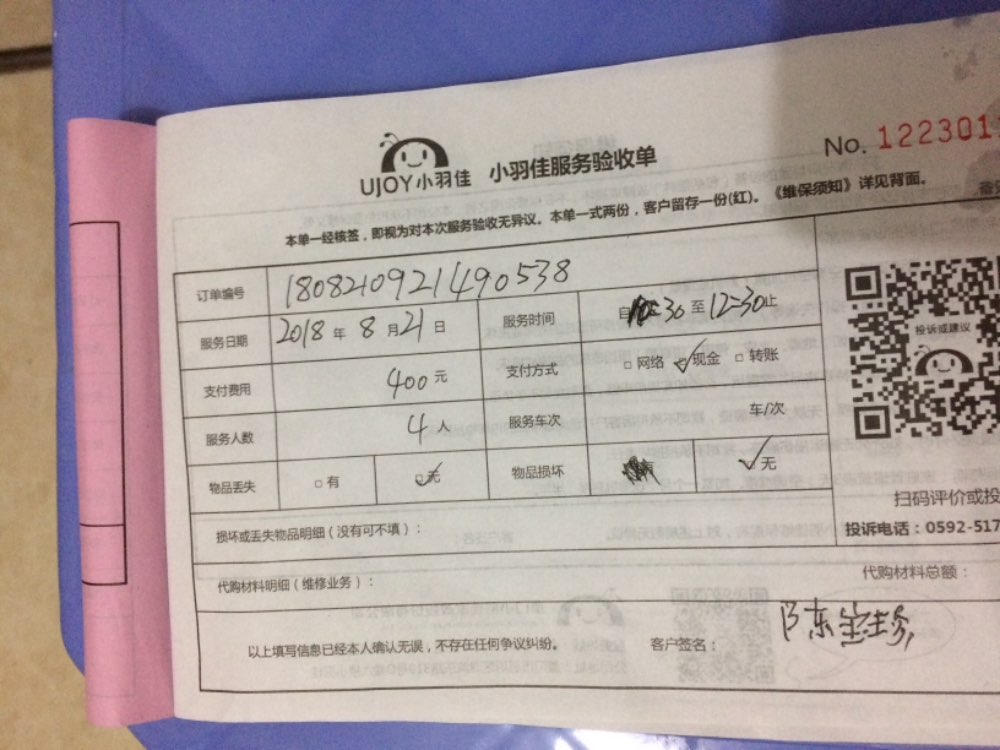 UJOY小羽佳 小羽佳服务验收单
No. 122301
本单一经核签，即视为对本次服务验收无异议。本单一式两份，客户留存一份(红)。《维保须知》详见背面。
订单编号 1808210921490538
服务日期 2018 年 8 月 21 日 服务时间 自 :30 至 12:30止
支付费用 400元 支付方式 □网络 ☑现金 □转账
服务人数 4 人 服务车次 车/次
物品丢失 □有 ☑无 物品损坏 有 ☑无
投诉或建议
扫码评价或投
投诉电话：0592-517
损坏或丢失物品明细（没有可不填）：
代购材料明细（维修业务）： 代购材料总额：
以上填写信息已经本人确认无误，不存在任何争议纠纷。 客户签名：